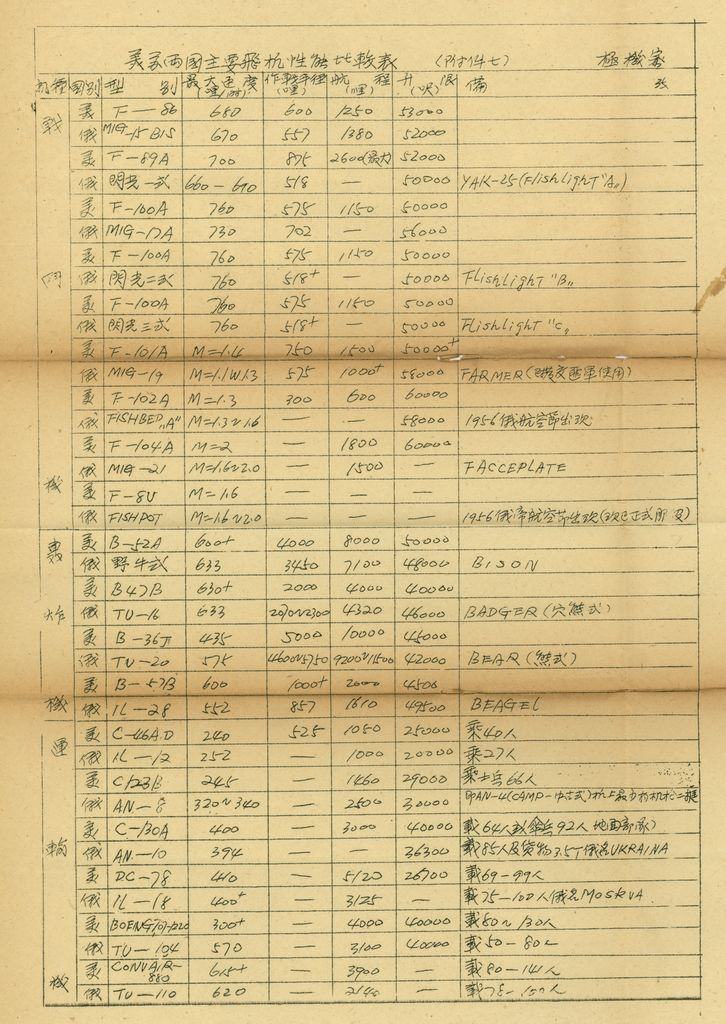 美俄兩國主要飛机性能比較表 (附件七) 極機密
机種 國別 型別 最大速度(哩/時) 作戰半徑(哩) 航程(哩) 升限(呎) 備 攷
戰 美 F—86 680 600 1250 53000
俄 MIG-15 BIS 670 557 1380 52000
美 F-89A 700 875 2600(最大) 52000
俄 閃光一式 660-690 518 — 50000 YAK-25(Flishlight "A")
美 F-100A 760 575 1150 50000
俄 MIG-17A 730 702 — 56000
美 F-100A 760 575 1150 50000
鬥 俄 閃光二式 760 518+ — 50000 Flishlight "B"
美 F-100A 760 575 1150 50000
俄 閃光三式 760 518+ — 50000 Flishlight "C"
美 F-101A M=1.4 750 1500 50000+
俄 MIG-19 M=1.1~1.3 575 1000+ 58000 FARMER
美 F-102A M=1.3 300 600 60000
俄 FISHBED "A" M=1.3~1.6 — — 58000 1956俄航空節出現
美 F-104A M=2 — 1800 60000
機 俄 MIG-21 M=1.6~2.0 — 1500 — FACCEPLATE
美 F-8U M=1.6 — — —
俄 FISHPOT M=1.6~2.0 — — — 1956俄帝航空節出現
轟 美 B-52A 600+ 4000 8000 50000
俄 野牛式 633 3450 7100 48000 BISON
美 B47B 630+ 2000 4000 40000
炸 俄 TU-16 633 2070~2300 4320 46000 BADGER
美 B-36J 435 5000 10000 45000
俄 TU-20 575 4600~5750 9200~11500 42000 BEAR (熊式)
美 B-57B 600 1000+ 2000 4500
機 俄 IL-28 552 857 1610 49500 BEAGEL
運 美 C-46A.D 240 525 1050 25000 乘40人
俄 IL-12 252 — 1000 20000 乘27人
美 C123B 245 — 1460 29000 乘士兵66人
俄 AN-8 320~340 — 2500 30000 即AN-4(CAMP-
美 C-130A 400 — 3000 40000 載64人或傘兵92人 地面部隊)
輸 俄 AN-10 394 — — 36300 載85人及貨物3.5T俄名UKRAINA
美 DC-78 410 — 5120 26700 載69-99人
俄 IL-18 400+ — 3125 — 載75-100人俄名MOSKVA
美 BOENG707-1220 300+ — 4000 40000 載80~130人
俄 TU-104 570 — 3100 40000 載50-80人
美 CONVAIR-880 615+ — 3900 — 載80-141人
機 俄 TU-110 620 — 2140 — 載78-100人